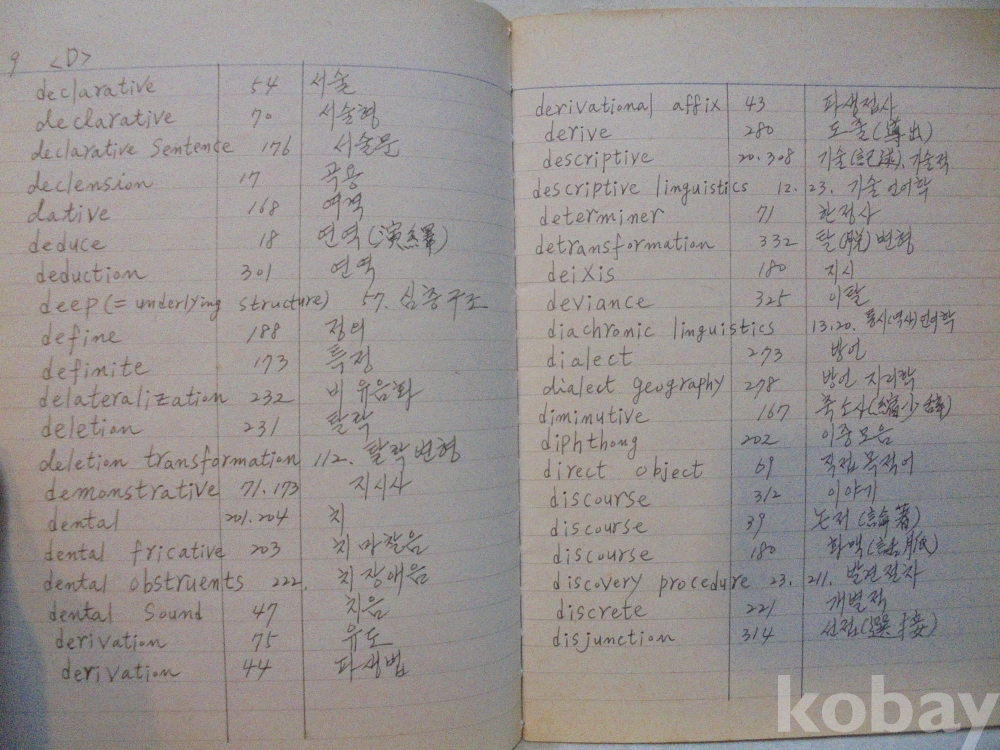 9 <D>
declarative 54 서술
declarative 70 서술형
declarative sentence 176 서술문
declension 17 곡용
dative 168 여격
deduce 18 연역(演繹)
deduction 301 연역
deep (= underlying structure) 57. 심층구조
define 188 정의
definite 173 특정
delateralization 232 비유음화
deletion 231 탈락
deletion transformation 112. 탈락변형
demonstrative 71.173 지시사
dental 201.204 치
dental fricative 203 치마찰음
dental obstruents 222. 치장애음
dental sound 47 치음
derivation 75 유도
derivation 44 파생법
derivational affix 43 파생접사
derive 280 도출(導出)
descriptive 20.308 기술(記述), 기술적
descriptive linguistics 12. 23. 기술언어학
determiner 71 한정사
detransformation 332 탈(脫)변형
deixis 180 지시
deviance 325 이탈
diachronic linguistics 13.20. 통시(역사)언어학
dialect 273 방언
dialect geography 278 방언 지리학
diminutive 167 축소사(縮小辭)
diphthong 202 이중모음
direct object 69 직접목적어
discourse 312 이야기
discourse 39 논저(論著)
discourse 180 화맥(話脈)
discovery procedure 23. 211. 발견절차
discrete 221 개별적
disjunction 314 선접(選接)
kobay